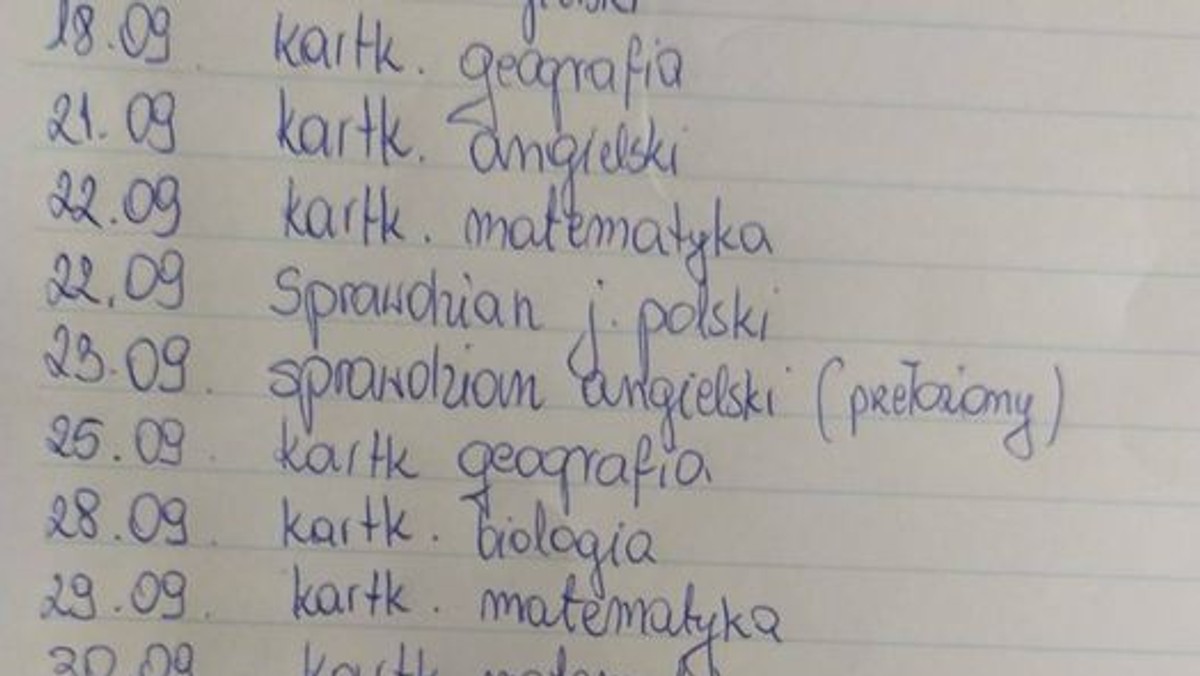 18.09 kartk. geografia
21.09 kartk. angielski
22.09 kartk. matematyka
22.09 Sprawdzian j. polski
23.09. sprawdzian angielski (przełożony)
25.09. kartk geografia
28.09. kartk. biologia
29.09. kartk. matematyka
30.09 kartk